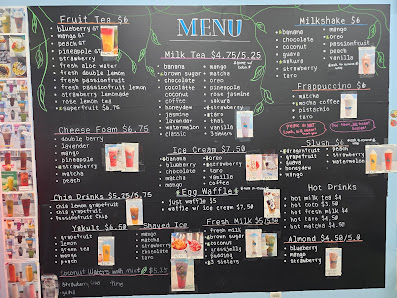 MENU
Fruit Tea $6
blueberry GT
mango GT
peach GT
pineapple GT
strawberry
fresh aloe water
fresh double lemon
fresh passionfruit
fresh passionfruit lemon
strawberry lemonade
rose lemon tea
superfruit $6.75
Cheese Foam $6.75
double berry
lavender
mango
pineapple
strawberry
matcha
peach
Chia Drinks $5.25/5.75
chia lemon grapefruit
chia grapefruit
passionfruit chia
Yakult $6.50
grapefruit
lemon
green tea
mango
peach
Shaved Ice
mango
matcha
strawberry
chocolate
taro
Coconut Waters with mint@ $5.25
strawberry
Milk Tea $4.75/5.25
banana
brown sugar
chocolate
coconut
coffee
honeydew
jasmine
lavender
watermelon
classic
mango
matcha
oreo
pineapple
rose jasmine
sakura
strawberry
taro
thai
vanilla
3 sisters
Ice Cream $7.50
banana
blueberry
chocolate
mango
oreo
strawberry
taro
vanilla
coffee
Egg Waffle
just waffle $5
waffle w/ ice cream $7.50
Fresh Milk $5/5.50
fresh milk
brown sugar
coconut
grassjelly
pudding
3 sisters
Milkshake $6
banana
chocolate
coconut
guava
sakura
strawberry
taro
mango
oreo
passionfruit
peach
vanilla
Frappuccino $6
matcha
mocha coffee
pistachio
taro
Slush $6
dragonfruit
grapefruit
guava
honeydew
mango
peach
strawberry
watermelon
Hot Drinks
hot milk tea $4
hot coco $3.50
hot fresh milk $4
hot taro $4.50
hot matcha $4.50
Almond $4.50/5.0
blueberry
mango
strawberry